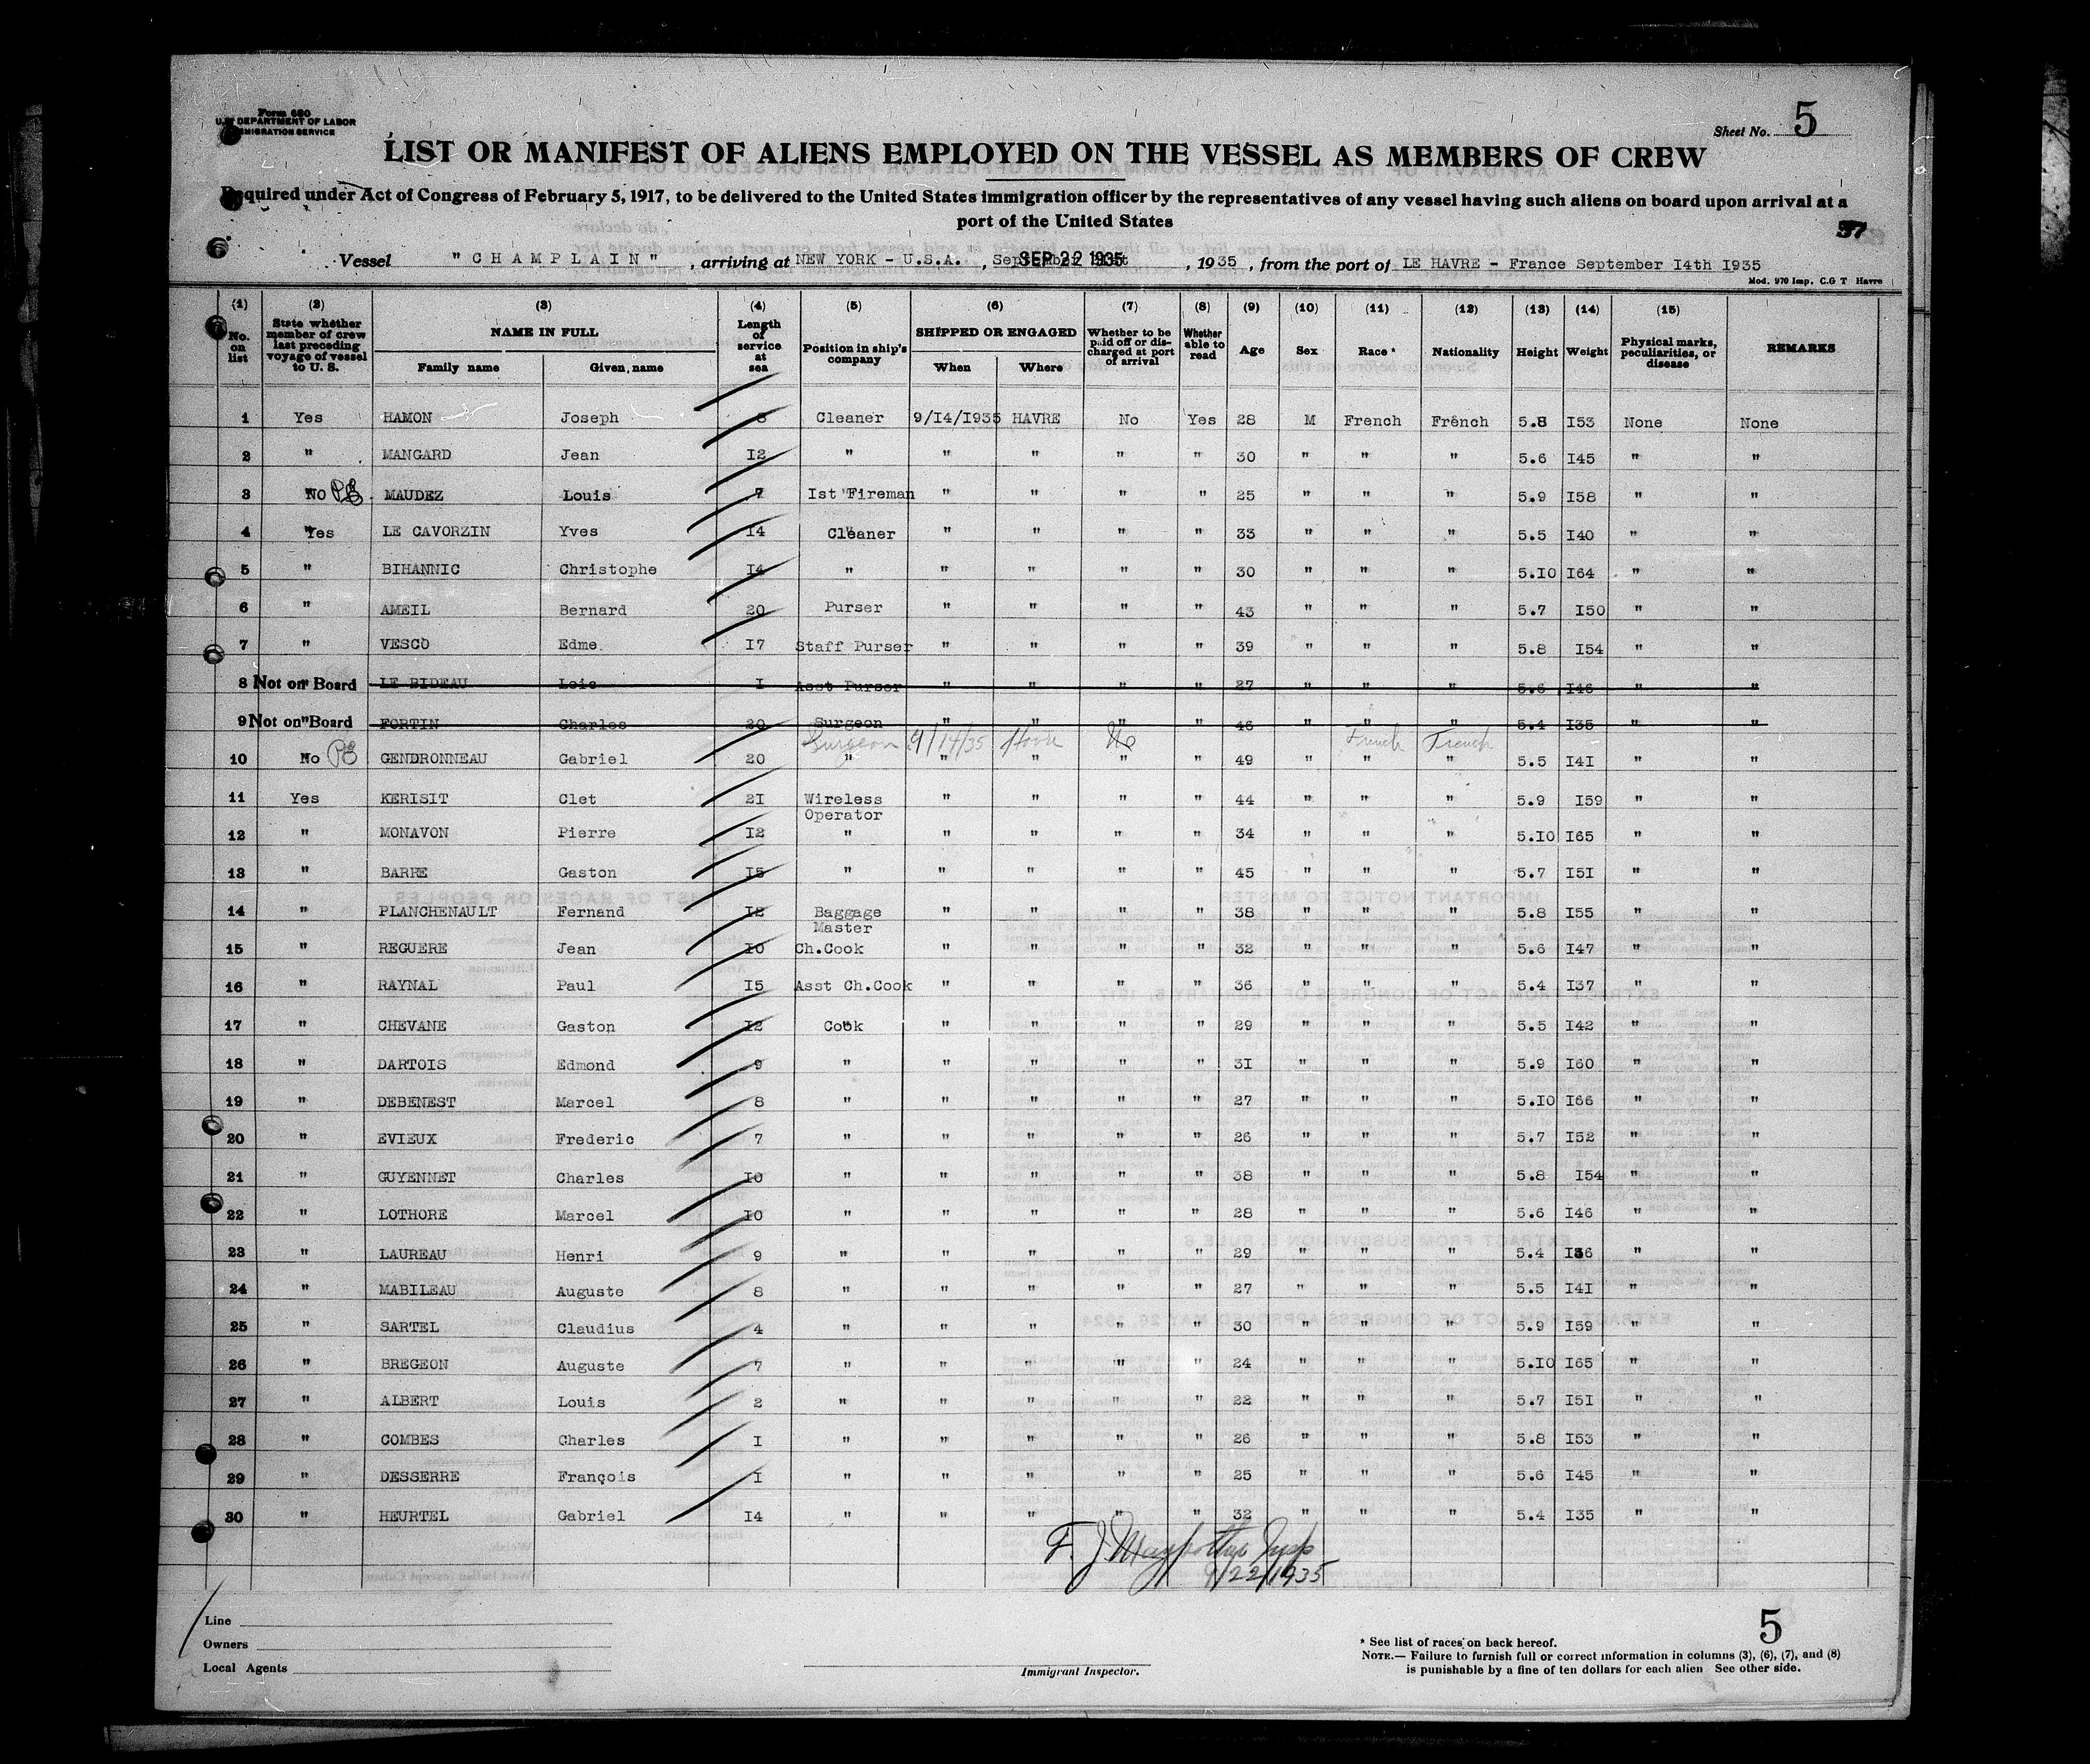 Form 680
U.S. DEPARTMENT OF LABOR
IMMIGRATION SERVICE
Sheet No. 5
LIST OR MANIFEST OF ALIENS EMPLOYED ON THE VESSEL AS MEMBERS OF CREW
Required under Act of Congress of February 5, 1917, to be delivered to the United States immigration officer by the representatives of any vessel having such aliens on board upon arrival at a
port of the United States
37
Vessel "CHAMPLAIN", arriving at NEW YORK - U.S.A., SEP 22 1935, 1935, from the port of LE HAVRE - France September I4th I935
Mod. 970 Imp. C.G T Havre
(1) (2) (3) (4) (5) (6) (7) (8) (9) (10) (11) (12) (13) (14) (15)
No. on list State whether member of crew last preceding voyage of vessel to U. S. NAME IN FULL Family name Given name Length of service at sea Position in ship's company SHIPPED OR ENGAGED When Where Whether to be paid off or discharged at port of arrival Whether able to read Age Sex Race * Nationality Height Weight Physical marks, peculiarities, or disease REMARKS
1 Yes HAMON Joseph 8 Cleaner 9/14/1935 HAVRE No Yes 28 M French French 5.8 I53 None None
2 " MANGARD Jean I2 " " " " " 30 " " " 5.6 I45 " "
3 No PE MAUDEZ Louis 7 Ist Fireman " " " " 25 " " " 5.9 I58 " "
4 Yes LE CAVORZIN Yves I4 Cleaner " " " " 33 " " " 5.5 I40 " "
5 " BIHANNIC Christophe I4 " " " " " 30 " " " 5.I0 I64 " "
6 " AMEIL Bernard 20 Purser " " " " 43 " " " 5.7 I50 " "
7 " VESCO Edme. I7 Staff Purser " " " " 39 " " " 5.8 I54 " "
8 Not on Board LE BIDEAU Loic I Asst Purser " " " " 27 " " " 5.6 I46 " "
9 Not on Board FORTIN Charles 20 Surgeon " " " " 46 " " " 5.4 I35 " "
Surgeon 9/14/35 Havre No French French
10 No PE GENDRONNEAU Gabriel 20 " " " " " 49 " " " 5.5 I4I " "
11 Yes KERISIT Clet 2I Wireless Operator " " " " 44 " " " 5.9 I59 " "
12 " MONAVON Pierre I2 " " " " " 34 " " " 5.I0 I65 " "
13 " BARRE Gaston I5 " " " " " 45 " " " 5.7 I5I " "
14 " PLANCHENAULT Fernand I2 Baggage Master " " " " 38 " " " 5.8 I55 " "
15 " REGUERE Jean I0 Ch.Cook " " " " 32 " " " 5.6 I47 " "
16 " RAYNAL Paul I5 Asst Ch.Cook " " " " 36 " " " 5.4 I37 " "
17 " CHEVANE Gaston I2 Cook " " " " 29 " " " 5.5 I42 " "
18 " DARTOIS Edmond 9 " " " " " 3I " " " 5.9 I60 " "
19 " DEBENEST Marcel 8 " " " " " 27 " " " 5.I0 I66 " "
20 " EVIEUX Frederic 7 " " " " " 26 " " " 5.7 I52 " "
21 " GUYENNET Charles I0 " " " " " 38 " " " 5.8 I54 " "
22 " LOTHORE Marcel I0 " " " " " 28 " " " 5.6 I46 " "
23 " LAUREAU Henri 9 " " " " " 29 " " " 5.4 I36 " "
24 " MABILEAU Auguste 8 " " " " " 27 " " " 5.5 I4I " "
25 " SARTEL Claudius 4 " " " " " 30 " " " 5.9 I59 " "
26 " BREGEON Auguste 7 " " " " " 24 " " " 5.I0 I65 " "
27 " ALBERT Louis 2 " " " " " 22 " " " 5.7 I5I " "
28 " COMBES Charles I " " " " " 26 " " " 5.8 I53 " "
29 " DESSERRE François I " " " " " 25 " " " 5.6 I45 " "
30 " HEURTEL Gabriel I4 " " " " " 32 " " " 5.4 I35 " "
F. J. Insp
9/22/1935
Line
Owners
Local Agents
Immigrant Inspector.
5
* See list of races on back hereof.
NOTE.— Failure to furnish full or correct information in columns (3), (6), (7), and (8)
is punishable by a fine of ten dollars for each alien See other side.